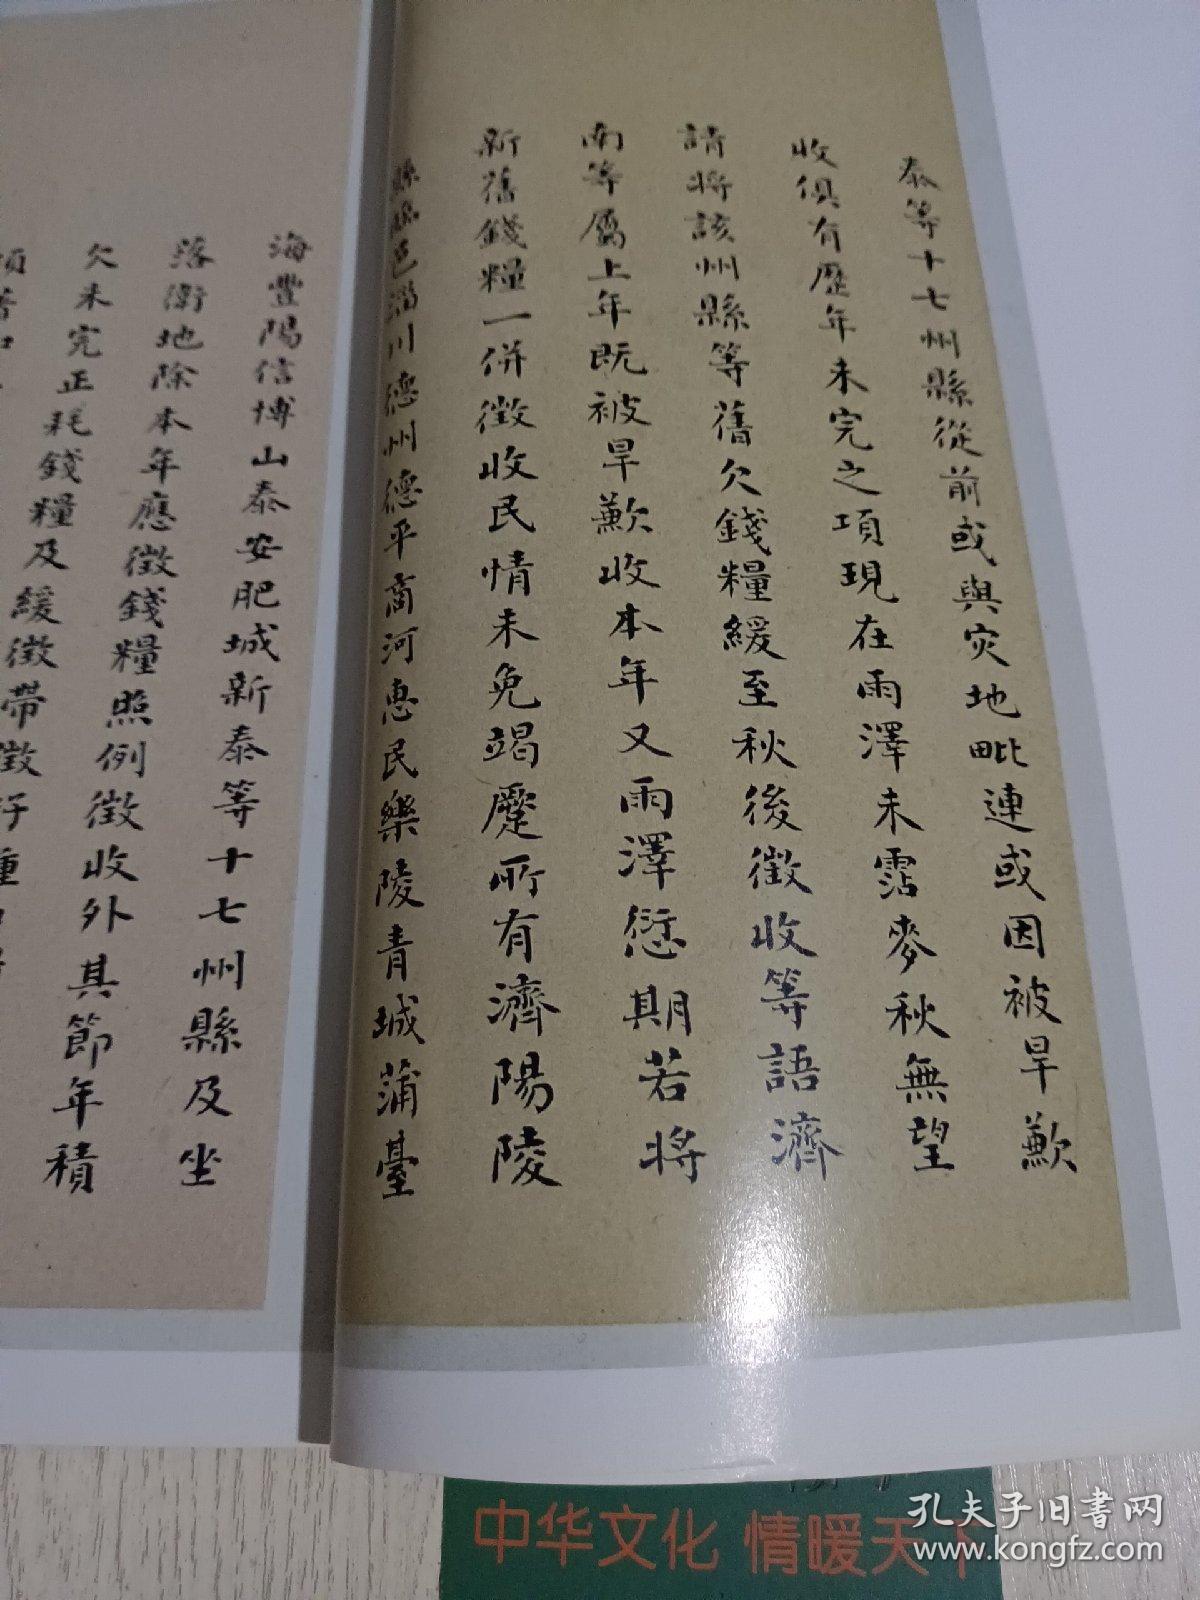 泰等十七州縣從前或與灾地毗連或因被旱歉
收俱有歷年未完之項現在雨澤未霑麥秋無望
請將該州縣等舊欠錢糧緩至秋後徵收等語濟
南等屬上年既被旱歉收本年又雨澤愆期若將
新舊錢糧一併徵收民情未免竭蹷所有濟陽陵
縣臨邑淄川德州德平商河惠民樂陵青城蒲臺
海豐陽信博山泰安肥城新泰等十七州縣及坐
落衛地除本年應徵錢糧照例徵收外其節年積
欠未完正耗錢糧及緩徵帶徵籽種
中华文化 情暖天下
孔夫子旧书网
www.kongfz.com